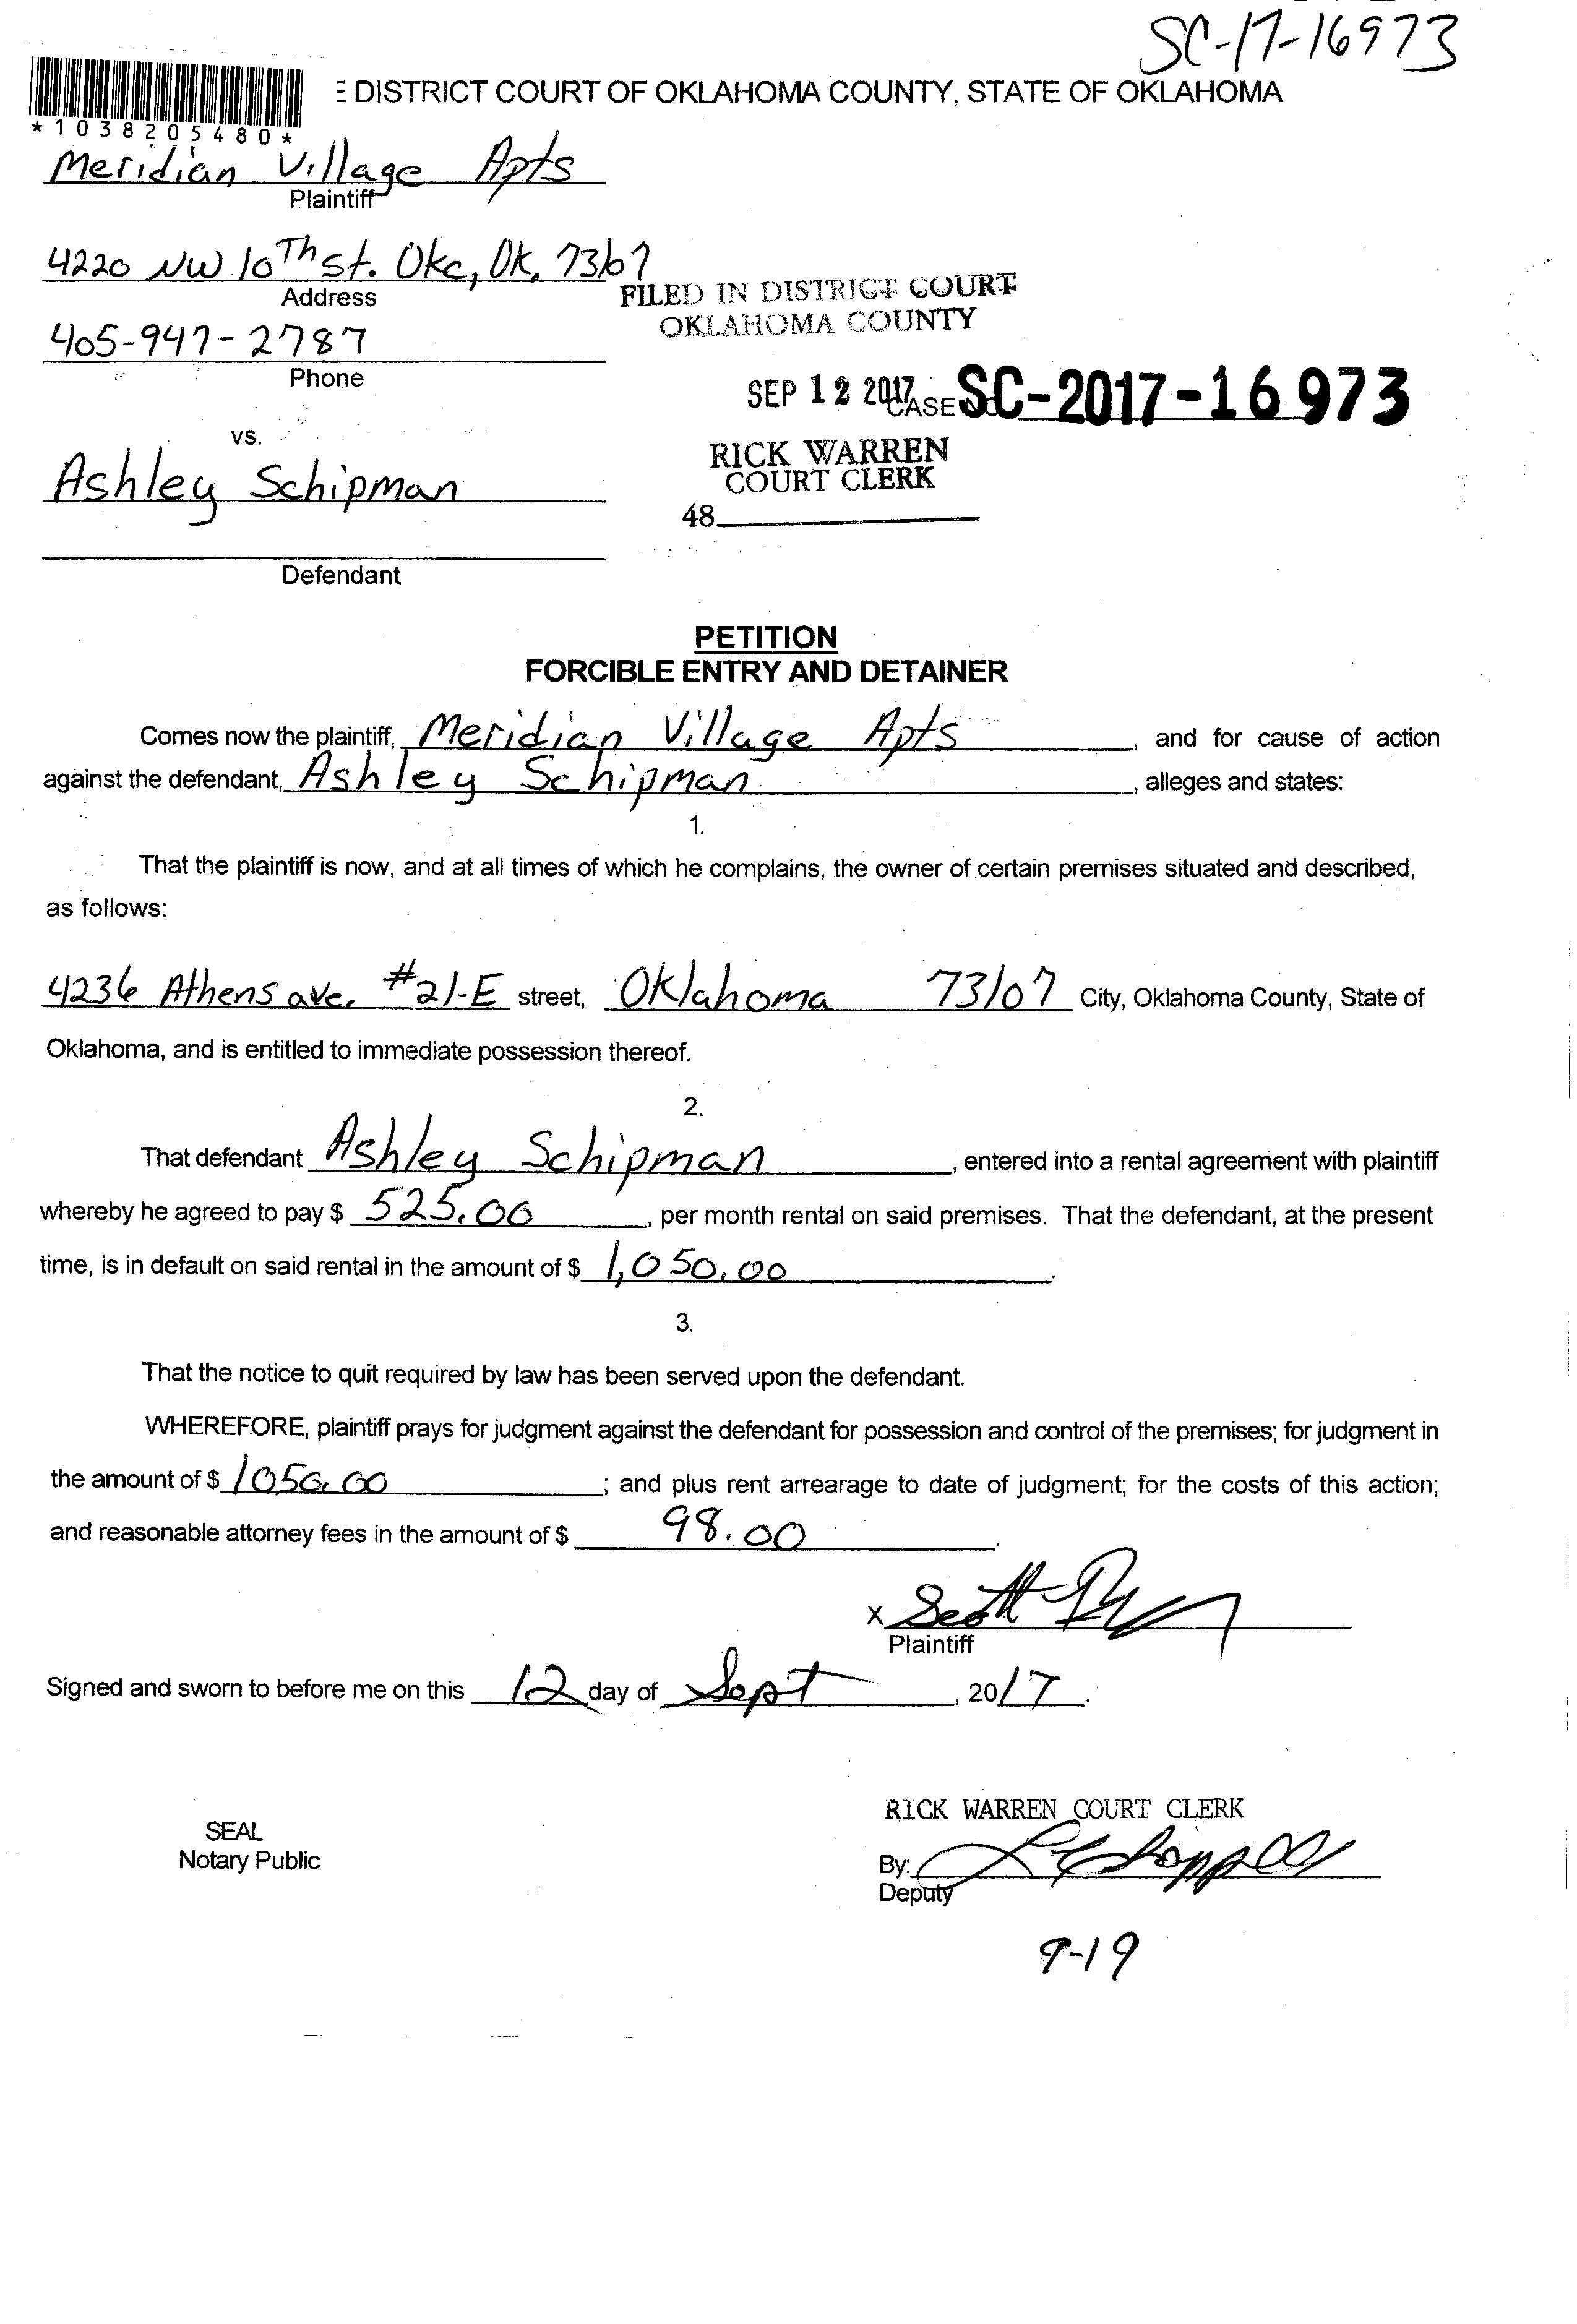 SC-17-16973
E DISTRICT COURT OF OKLAHOMA COUNTY, STATE OF OKLAHOMA
*1038205480*
Meridian Village Apts
Plaintiff
4220 NW 10Th St. Okc, Ok, 73107
Address
FILED IN DISTRICT COURT
OKLAHOMA COUNTY
405-947-2787
Phone
SEP 12 2017 CASE NO SC-2017-16973
vs.
RICK WARREN
COURT CLERK
Ashley Schipman
48
Defendant
PETITION
FORCIBLE ENTRY AND DETAINER
Comes now the plaintiff, Meridian Village Apts, and for cause of action
against the defendant, Ashley Schipman, alleges and states:
1.
That the plaintiff is now, and at all times of which he complains, the owner of certain premises situated and described,
as follows:
4236 Athens ave. #21-E street, Oklahoma 73107 City, Oklahoma County, State of
Oklahoma, and is entitled to immediate possession thereof.
2.
That defendant Ashley Schipman, entered into a rental agreement with plaintiff
whereby he agreed to pay $ 525.00, per month rental on said premises. That the defendant, at the present
time, is in default on said rental in the amount of $ 1,050.00.
3.
That the notice to quit required by law has been served upon the defendant.
WHEREFORE, plaintiff prays for judgment against the defendant for possession and control of the premises; for judgment in
the amount of $ 1050.00; and plus rent arrearage to date of judgment; for the costs of this action;
and reasonable attorney fees in the amount of $ 98.00.
X Scott
Plaintiff
Signed and sworn to before me on this 12 day of Sept, 2017.
RICK WARREN COURT CLERK
SEAL
Notary Public
By:
Deputy
9-19